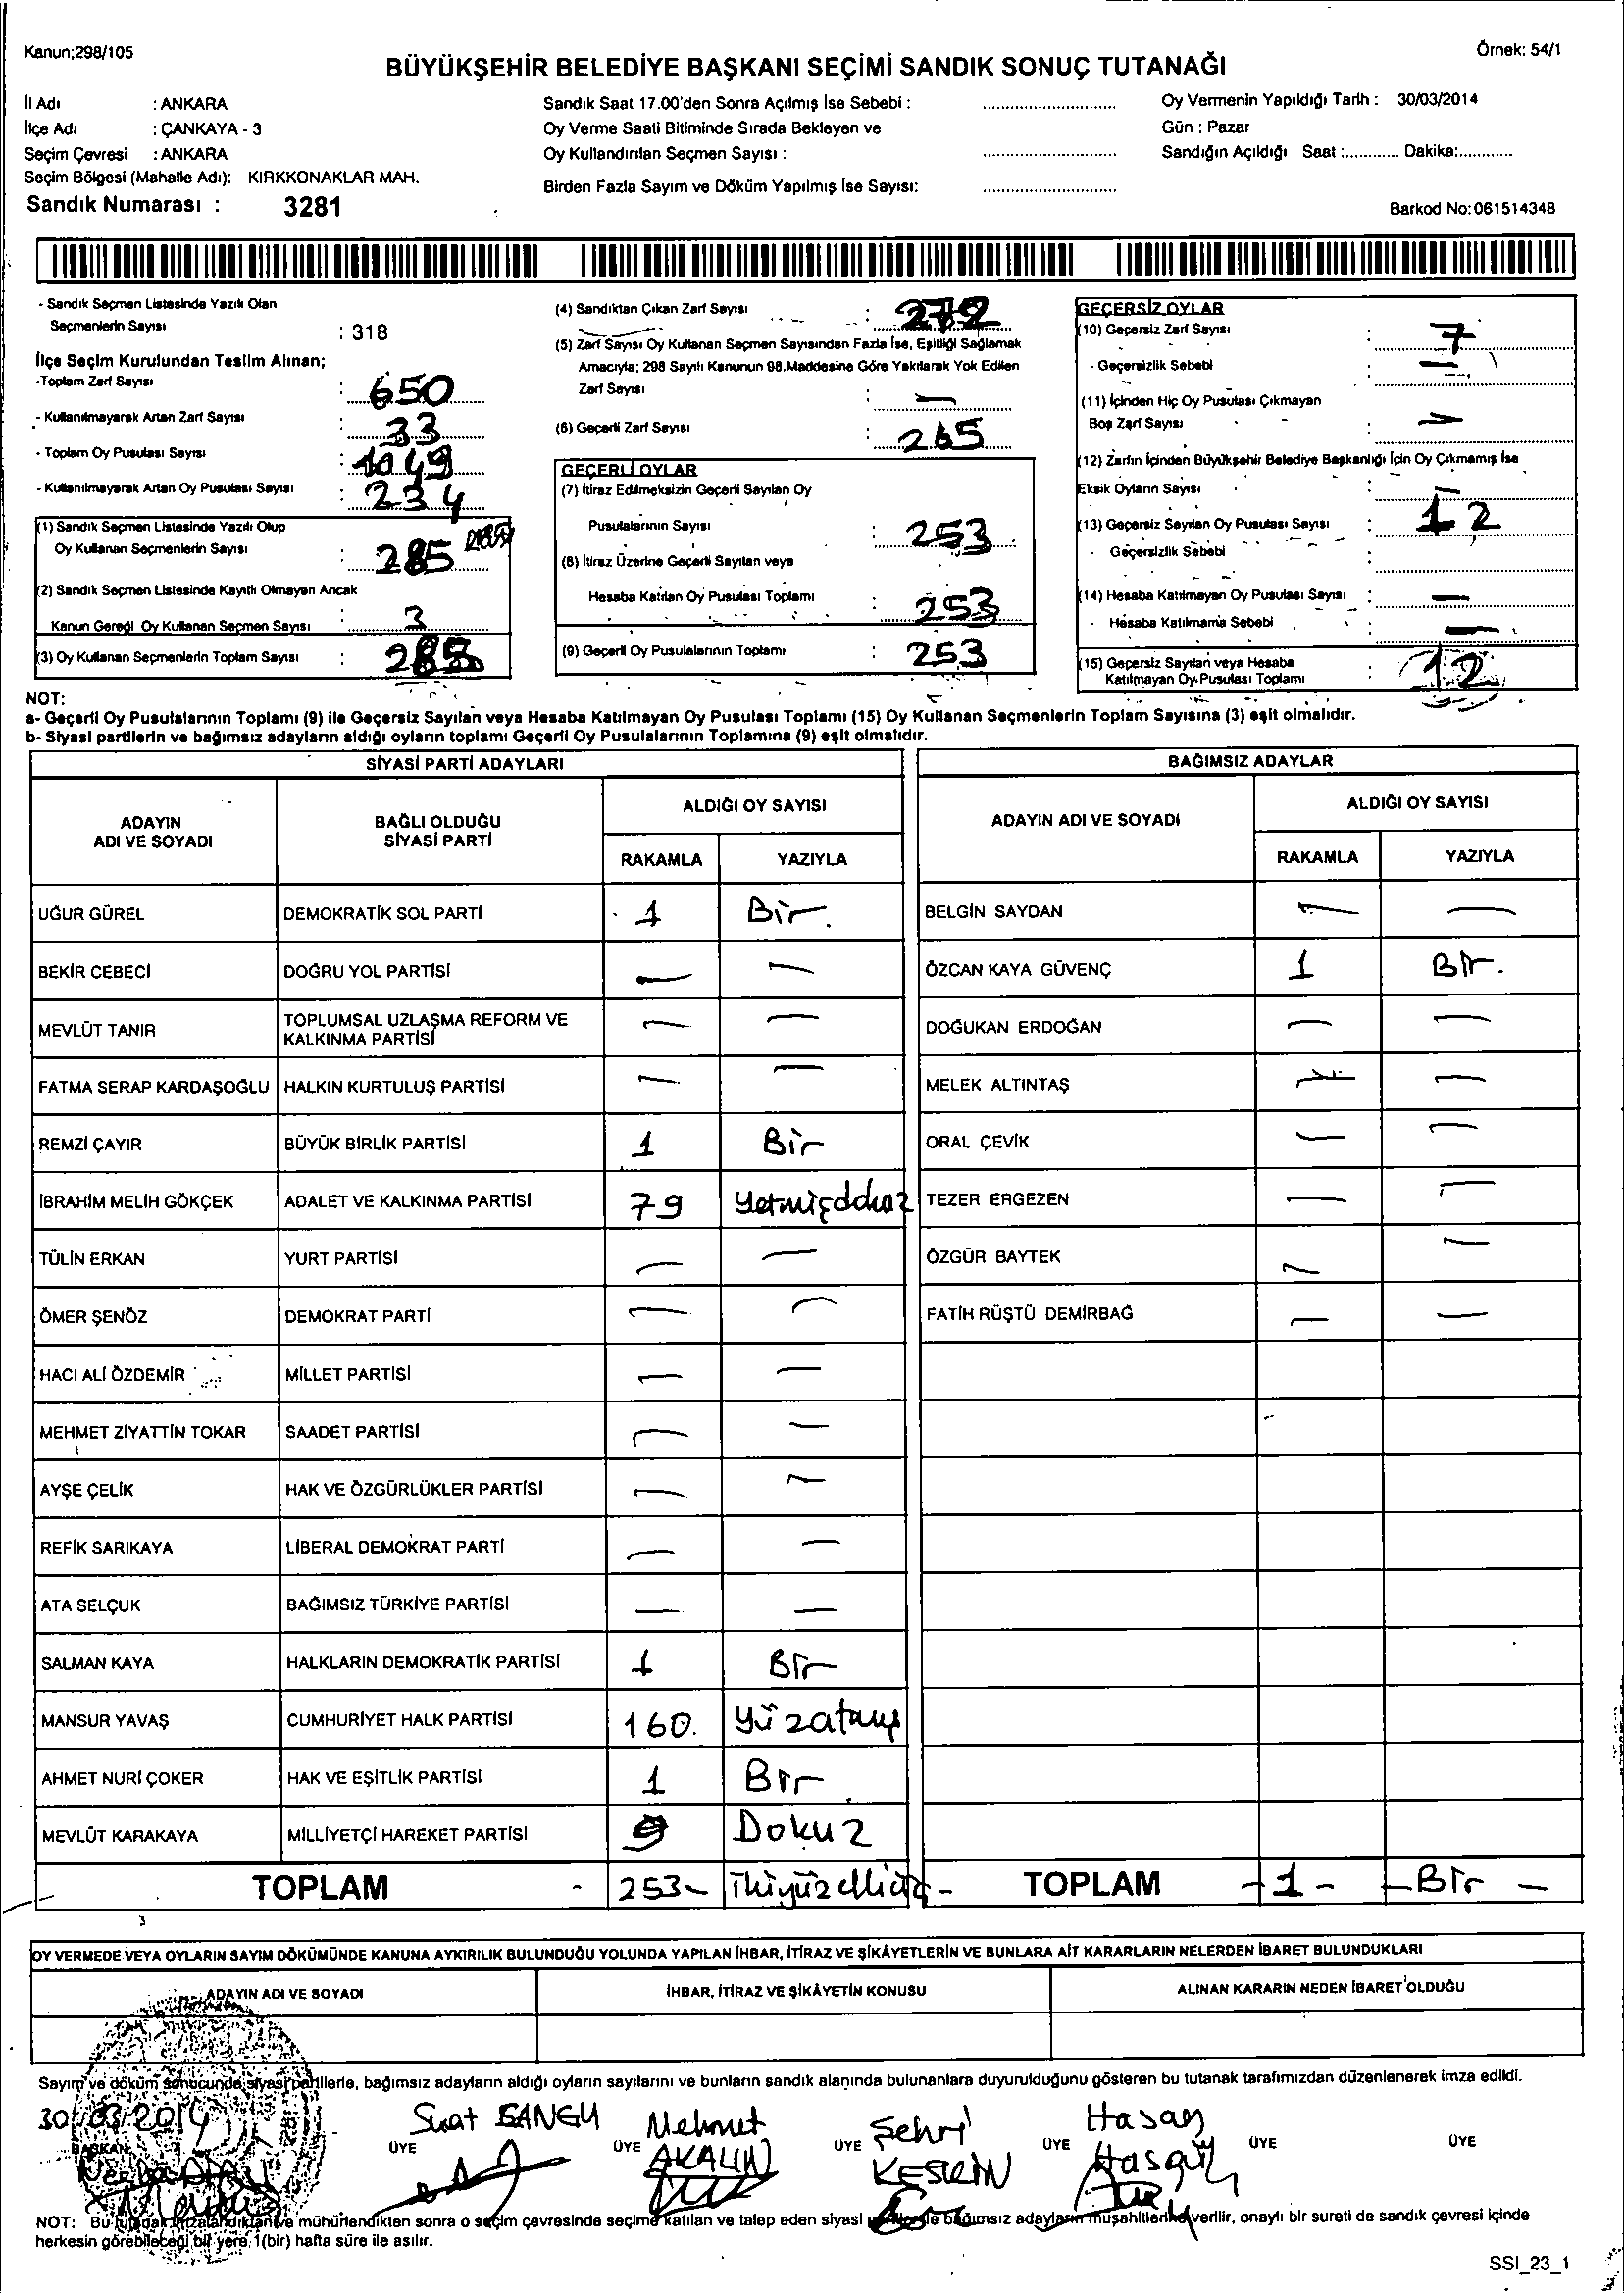 Kanun;298/105
Örnek: 54/1
BÜYÜKŞEHİR BELEDİYE BAŞKANI SEÇİMİ SANDIK SONUÇ TUTANAĞI
İl Adı : ANKARA
İlçe Adı : ÇANKAYA - 3
Seçim Çevresi : ANKARA
Seçim Bölgesi (Mahalle Adı): KIRKKONAKLAR MAH.
Sandık Numarası : 3281
Sandık Saat 17.00'den Sonra Açılmış İse Sebebi :
Oy Verme Saati Bitiminde Sırada Bekleyen ve
Oy Kullandırılan Seçmen Sayısı :
Birden Fazla Sayım ve Döküm Yapılmış İse Sayısı:
Oy Vermenin Yapıldığı Tarih : 30/03/2014
Gün : Pazar
Sandığın Açıldığı Saat :............ Dakika:............
Barkod No:061514348
- Sandık Seçmen Listesinde Yazılı Olan
Seçmenlerin Sayısı : 318
İlçe Seçim Kurulundan Teslim Alınan;
-Toplam Zarf Sayısı : 650
- Kullanılmayarak Artan Zarf Sayısı : 33
- Toplam Oy Pusulası Sayısı : 1049
- Kullanılmayarak Artan Oy Pusulası Sayısı : 234
(1) Sandık Seçmen Listesinde Yazılı Olup
Oy Kullanan Seçmenlerin Sayısı : 285
(2) Sandık Seçmen Listesinde Kayıtlı Olmayan Ancak
Kanun Gereği Oy Kullanan Seçmen Sayısı : 3
(3) Oy Kullanan Seçmenlerin Toplam Sayısı :
(4) Sandıktan Çıkan Zarf Sayısı : 272
(5) Zarf Sayısı Oy Kullanan Seçmen Sayısından Fazla İse, Eşitliği Sağlamak
Amacıyla; 298 Sayılı Kanunun 98.Maddesine Göre Yakılarak Yok Edilen
Zarf Sayısı : —
(6) Geçerli Zarf Sayısı : 265
GEÇERLİ OYLAR
(7) İtiraz Edilmeksizin Geçerli Sayılan Oy
Pusulalarının Sayısı : 253
(8) İtiraz Üzerine Geçerli Sayılan veya
Hesaba Katılan Oy Pusulası Toplamı : 253
(9) Geçerli Oy Pusulalarının Toplamı : 253
GEÇERSİZ OYLAR
(10) Geçersiz Zarf Sayısı : 7
- Geçersizlik Sebebi : —
(11) İçinden Hiç Oy Pusulası Çıkmayan
Boş Zarf Sayısı : —
(12) Zarfın İçinden Büyükşehir Belediye Başkanlığı İçin Oy Çıkmamış İse
Eksik Oyların Sayısı : —
(13) Geçersiz Sayılan Oy Pusulası Sayısı : 12
- Geçersizlik Sebebi :
(14) Hesaba Katılmayan Oy Pusulası Sayısı : —
- Hesaba Katılmama Sebebi : —
(15) Geçersiz Sayılan veya Hesaba
Katılmayan Oy Pusulası Toplamı : 12
NOT:
a- Geçerli Oy Pusulalarının Toplamı (9) ile Geçersiz Sayılan veya Hesaba Katılmayan Oy Pusulası Toplamı (15) Oy Kullanan Seçmenlerin Toplam Sayısına (3) eşit olmalıdır.
b- Siyasi partilerin ve bağımsız adayların aldığı oyların toplamı Geçerli Oy Pusulalarının Toplamına (9) eşit olmalıdır.
SİYASİ PARTİ ADAYLARI
ADAYIN ADI VE SOYADI
BAĞLI OLDUĞU SİYASİ PARTİ
ALDIĞI OY SAYISI
RAKAMLA YAZIYLA
UĞUR GÜREL DEMOKRATİK SOL PARTİ 1 Bir.
BEKİR CEBECİ DOĞRU YOL PARTİSİ — —
MEVLÜT TANIR TOPLUMSAL UZLAŞMA REFORM VE KALKINMA PARTİSİ — —
FATMA SERAP KARDAŞOĞLU HALKIN KURTULUŞ PARTİSİ — —
REMZİ ÇAYIR BÜYÜK BİRLİK PARTİSİ 1 Bir
İBRAHİM MELİH GÖKÇEK ADALET VE KALKINMA PARTİSİ 79 Yetmişdokuz
TÜLİN ERKAN YURT PARTİSİ — —
ÖMER ŞENÖZ DEMOKRAT PARTİ — —
HACI ALİ ÖZDEMİR MİLLET PARTİSİ — —
MEHMET ZİYATTİN TOKAR SAADET PARTİSİ — —
AYŞE ÇELİK HAK VE ÖZGÜRLÜKLER PARTİSİ — —
REFİK SARIKAYA LİBERAL DEMOKRAT PARTİ — —
ATA SELÇUK BAĞIMSIZ TÜRKİYE PARTİSİ — —
SALMAN KAYA HALKLARIN DEMOKRATİK PARTİSİ 1 Bir
MANSUR YAVAŞ CUMHURİYET HALK PARTİSİ 160. Yüzatmış
AHMET NURİ ÇOKER HAK VE EŞİTLİK PARTİSİ 1 Bir
MEVLÜT KARAKAYA MİLLİYETÇİ HAREKET PARTİSİ 9 Dokuz
TOPLAM - 253- İkiyüzelliüç-
BAĞIMSIZ ADAYLAR
ADAYIN ADI VE SOYADI
ALDIĞI OY SAYISI
RAKAMLA YAZIYLA
BELGİN SAYDAN — —
ÖZCAN KAYA GÜVENÇ 1 Bir.
DOĞUKAN ERDOĞAN — —
MELEK ALTINTAŞ — —
ORAL ÇEVİK — —
TEZER ERGEZEN — —
ÖZGÜR BAYTEK — —
FATİH RÜŞTÜ DEMİRBAĞ — —
TOPLAM -1- -Bir-
OY VERMEDE VEYA OYLARIN SAYIM DÖKÜMÜNDE KANUNA AYKIRILIK BULUNDUĞU YOLUNDA YAPILAN İHBAR, İTİRAZ VE ŞİKÂYETLERİN VE BUNLARA AİT KARARLARIN NELERDEN İBARET BULUNDUKLARI
ADAYIN ADI VE SOYADI İHBAR, İTİRAZ VE ŞİKÂYETİN KONUSU ALINAN KARARIN NEDEN İBARET OLDUĞU
Sayım ve döküm sonucunda siyasi partilerle, bağımsız adayların aldığı oyların sayılarını ve bunların sandık alanında bulunanlara duyurulduğunu gösteren bu tutanak tarafımızdan düzenlenerek imza edildi.
30/03/2014
BAŞKAN
ÜYE Suat SANGU
ÜYE Mehmet AKALIN
ÜYE Şehri KESKİN
ÜYE Hasan Hasgül
ÜYE
ÜYE
NOT: Bu tutanak imzalandıktan ve mühürlendikten sonra o seçim çevresinde seçime katılan ve talep eden siyasi partilerle bağımsız adayların müşahitlerine verilir, onaylı bir sureti de sandık çevresi içinde
herkesin görebileceği bir yere, 1(bir) hafta süre ile asılır.
SSI_23_1